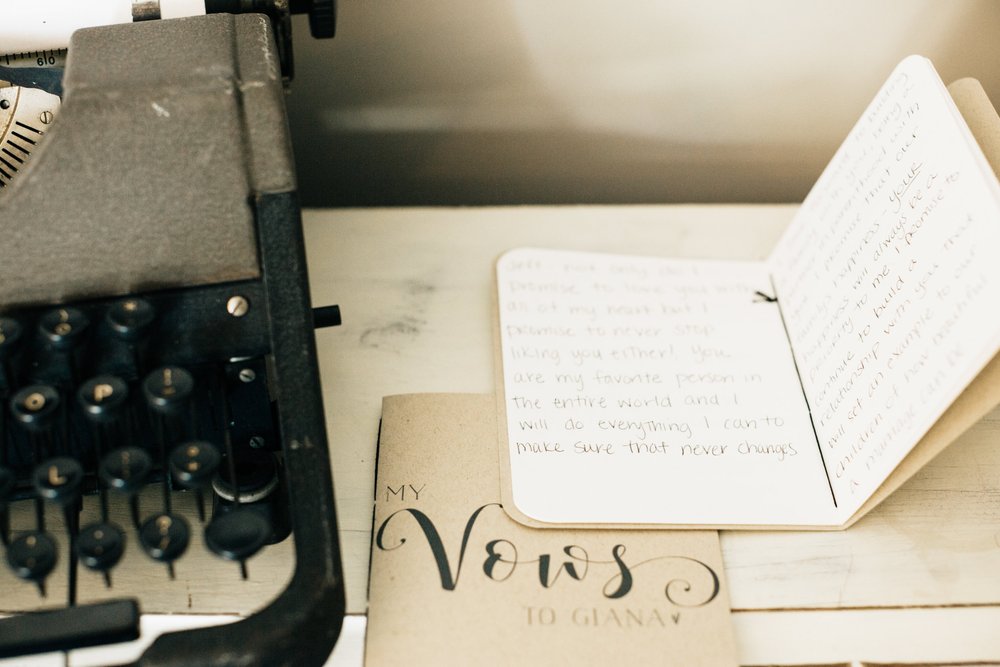 60
Jeff, not only do I
promise to love you with
all of my heart but I
promise to never stop
liking you either! You
are my favorite person in
the entire world and I
will do everything I can to
make sure that never changes
to building
with you, being a
parenthood with
I promise that our
family's happiness, YOUR
happiness will always be a
priority to me. I promise to
continue to build a
relationship with you that
will set an example to our
children of how beautiful
a marriage can be
MY
Vows
TO GIANA
P
L